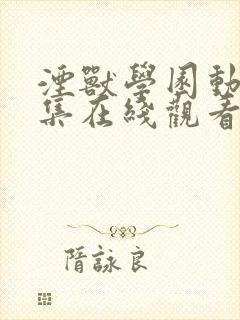 湮獸學園動
集在綫觀看
隋詠良